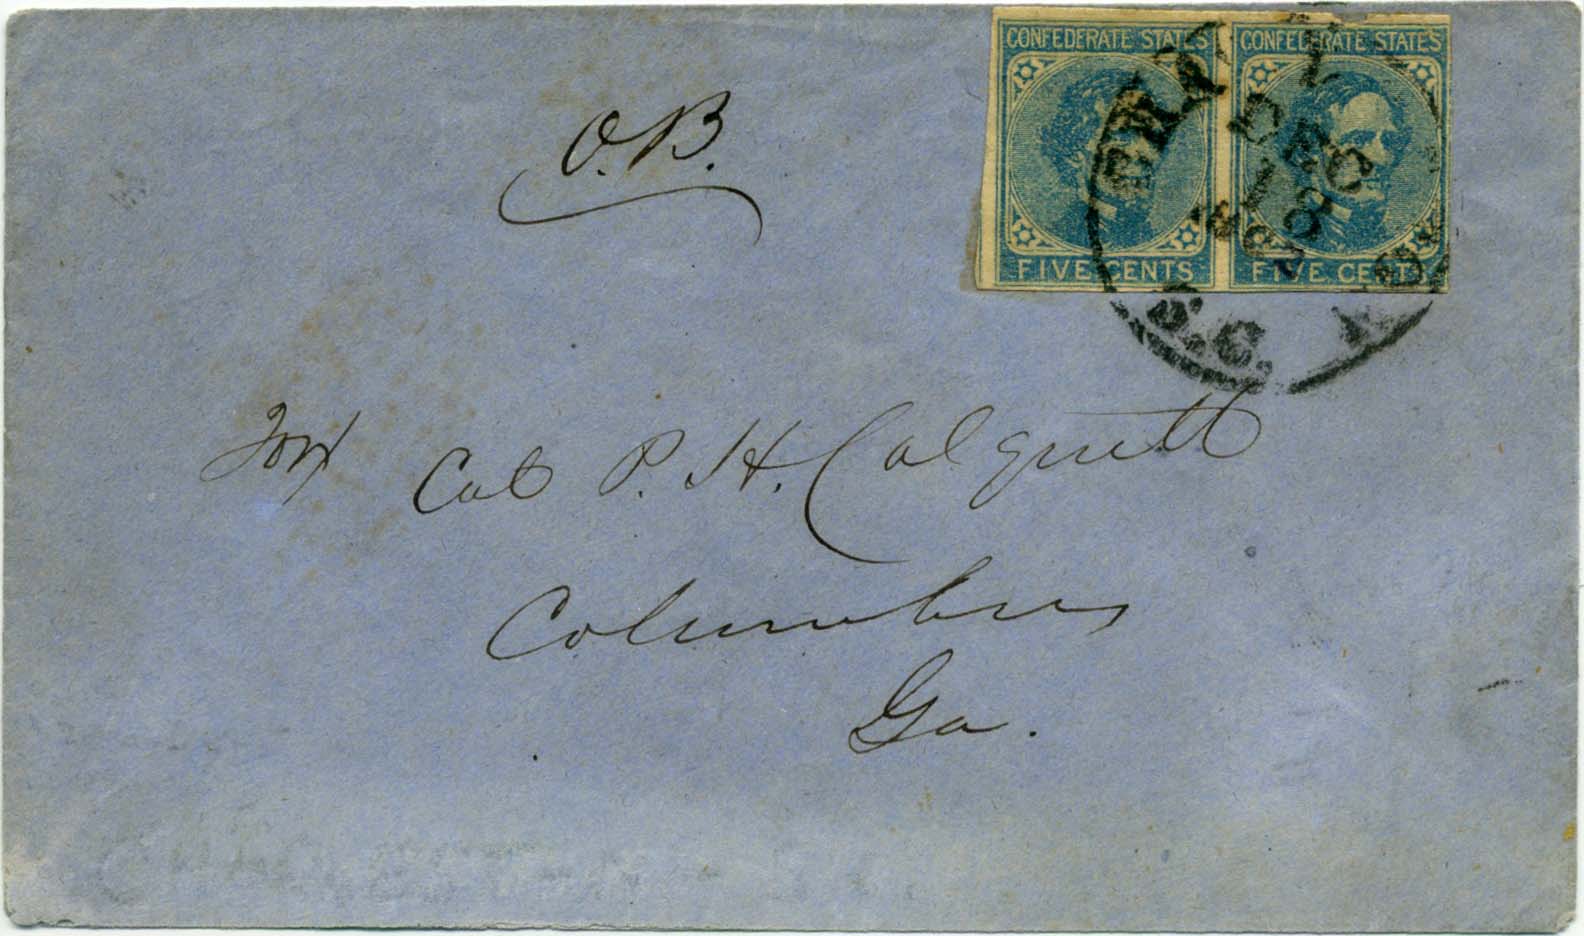 CONFEDERATE STATES CONFEDERATE STATES
FIVE CENTS FIVE CENTS
DEC
S.C.
O.B.
Col P. H. Colquitt
Columbus
Ga.